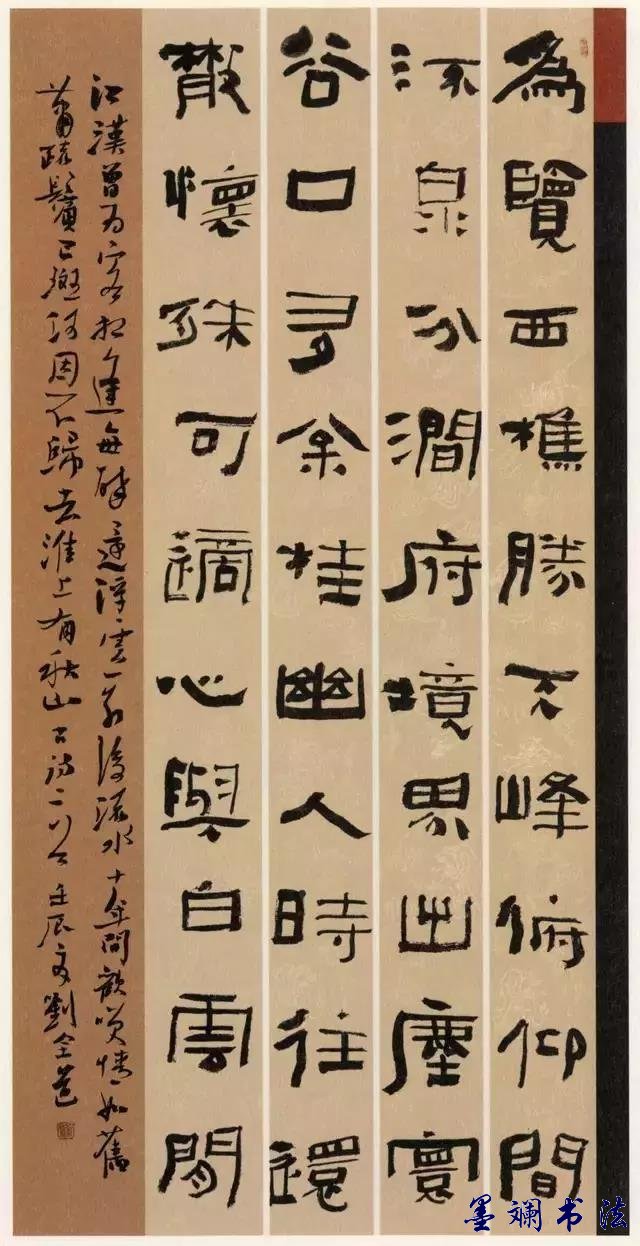 為覽西樵勝峰俯仰間
流泉分澗府境界出塵寰
谷口多余桂幽人時往還
散懷殊可適心與白雲閒
江漢曾為客相逢每醉還浮雲一別後流水十年間歡笑情如舊
蕭疏鬢已斑何因不歸去淮上有秋山古詩二壬辰劉全
墨斓书法